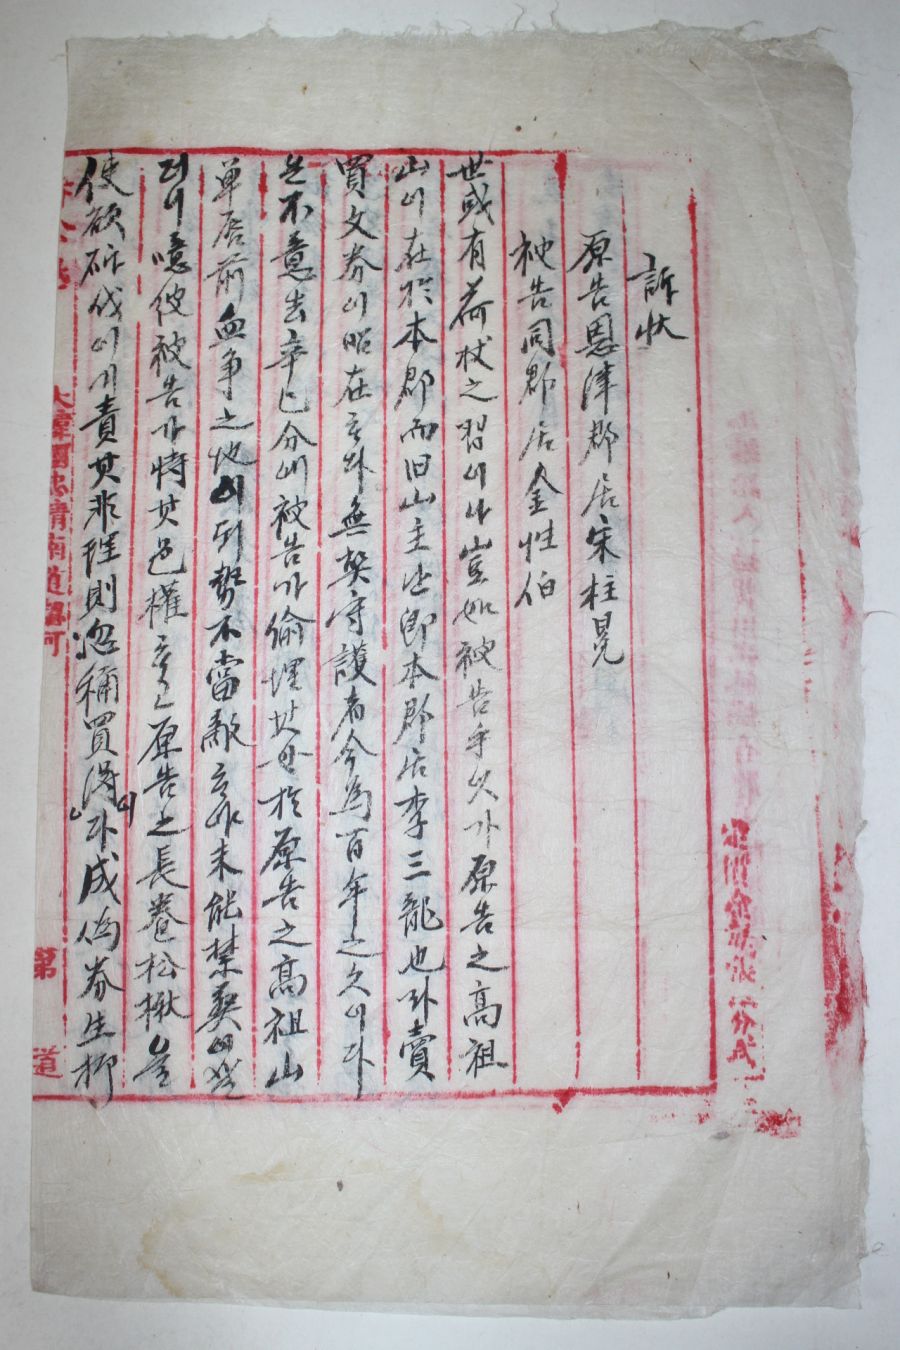 訴狀
原告恩津郡居宋柱晃
被告同郡居金性伯
世或有荷杖之習이나豈如被告乎又가原告之高祖
山이在於本郡而旧山主卽本郡居李三龍也라賣
買文券이昭在하와無弊守護者今爲百年之久이라
不意去辛巳分에被告가偸埋其母於原告之高祖山
單唇前血爭之地에形勢不當敵하와未能禁葬이
러니噫彼被告가恃其邑權하고原告之長養松楸를
使欲斫伐이기責其非理則忽稱買得이라成僞券生
大韓國忠淸南道
第 道